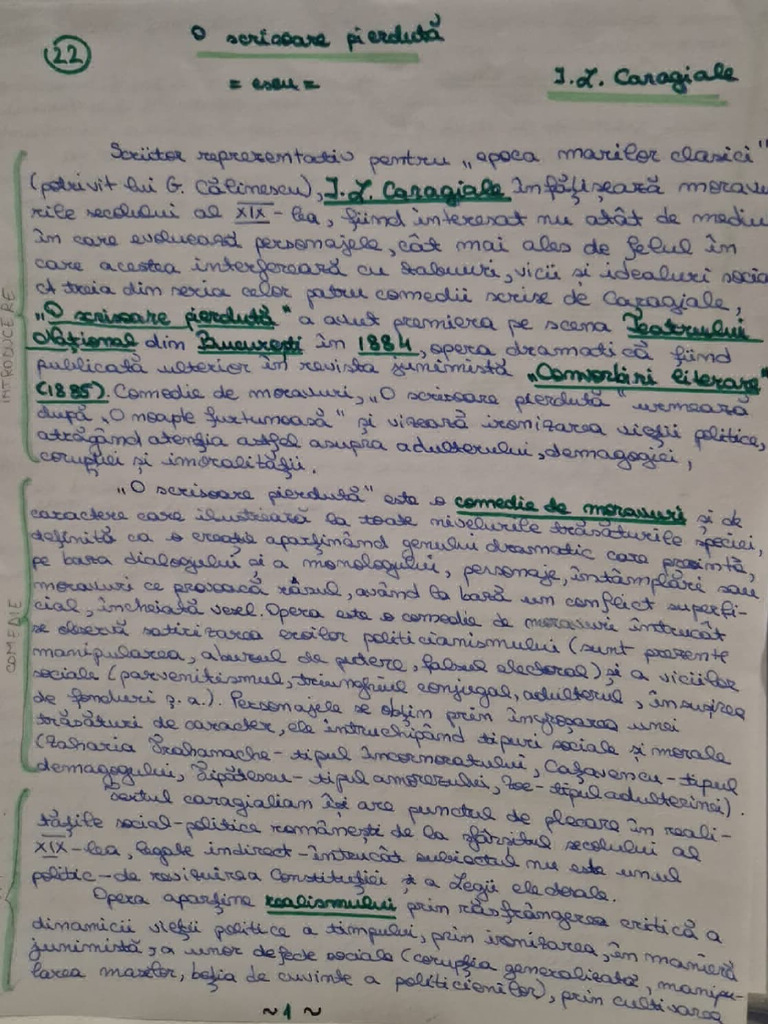 22
O scrisoare pierdută
= eseu =
I.L. Caragiale
Scriitor reprezentativ pentru „epoca marilor clasici"
(potrivit lui G. Călinescu), I.L. Caragiale înfățișează moravu-
rile secolului al XIX-lea, fiind interesat nu atât de mediu
în care evoluează personajele, cât mai ales de felul în
care acestea interferează cu tabuuri, vicii și idealuri socia
A treia din seria celor patru comedii scrise de Caragiale,
„O scrisoare pierdută" a avut premiera pe scena Teatrului
Național din București în 1884, opera dramatică fiind
publicată ulterior în revista junimistă „Convorbiri literare"
(1885). Comedie de moravuri, „O scrisoare pierdută" urmează
după „O noapte furtunoasă" și vizează ironizarea vieții politice,
atrăgând atenția astfel asupra adulterului, demagogiei,
corupției și imoralității.
INTRODUCERE
„O scrisoare pierdută" este o comedie de moravuri și de
caractere care ilustrează la toate nivelurile trăsăturile speciei,
definită ca o creație aparținând genului dramatic care prezintă,
pe baza dialogului și a monologului, personaje, întâmplări sau
moravuri ce provoacă râsul, având la bază un conflict superfi-
cial, încheiată vesel. Opera este o comedie de moravuri întrucât
se observă satirizarea eroilor politicianismului (sunt prezente
manipularea, abuzul de putere, falsul electoral) și a viciilor
sociale (parvenitismul, triunghiul conjugal, adulterul, însușirea
de fonduri ș.a.). Personajele se obțin prin îngroșarea unei
trăsături de caracter, ele întruchipând tipuri sociale și morale
(Zaharia Trahanache - tipul încornoratului, Cațavencu - tipul
demagogului, Tipătescu - tipul amorezului, Zoe - tipul adulterinei).
COMEDIE
Textul caragialian își are punctul de plecare în reali-
tățile social-politice românești de la sfârșitul secolului al
XIX-lea, legate indirect - întrucât subiectul nu este unul
politic - de revizuirea Constituției și a Legii electorale.
Opera aparține realismului prin răsfrângerea critică a
dinamicii vieții politice a timpului, prin ironizarea, în manieră
junimistă, a unor defecte sociale (corupția generalizată, manipu-
larea maselor, beția de cuvinte a politicienilor), prin cultivarea
~ 1 ~